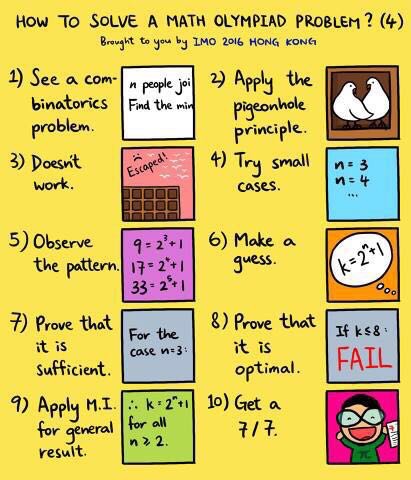 HOW TO SOLVE A MATH OLYMPIAD PROBLEM? (4)
Brought to you by IMO 2016 HONG KONG
1) See a com-
binatorics
problem.
n people joi
Find the min
2) Apply the
pigeonhole
principle.
3) Doesn't
work.
Escaped!
4) Try small
cases.
n = 3
n = 4
...
5) Observe
the pattern.
9 = 2³+1
17 = 2⁴+1
33 = 2⁵+1
6) Make a
guess.
k = 2ⁿ+1
7) Prove that
it is
sufficient.
For the
case n=3:
8) Prove that
it is
optimal.
If k≤8:
FAIL
9) Apply M.I.
for general
result.
∴ k = 2ⁿ+1
for all
n ≥ 2.
10) Get a
7/7.
7
π